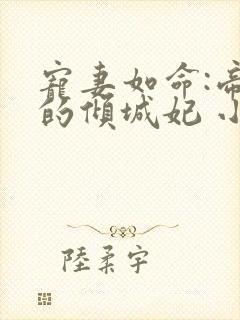 寵妻如命:帝
的傾城妃 小
陸柔宇